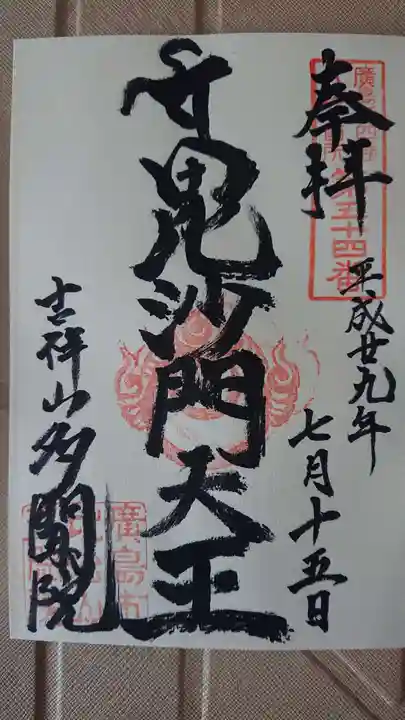 第五十四番
奉拝
平成廿九年
七月十五日
毘沙門天王
吉祥山多聞院
廣島市